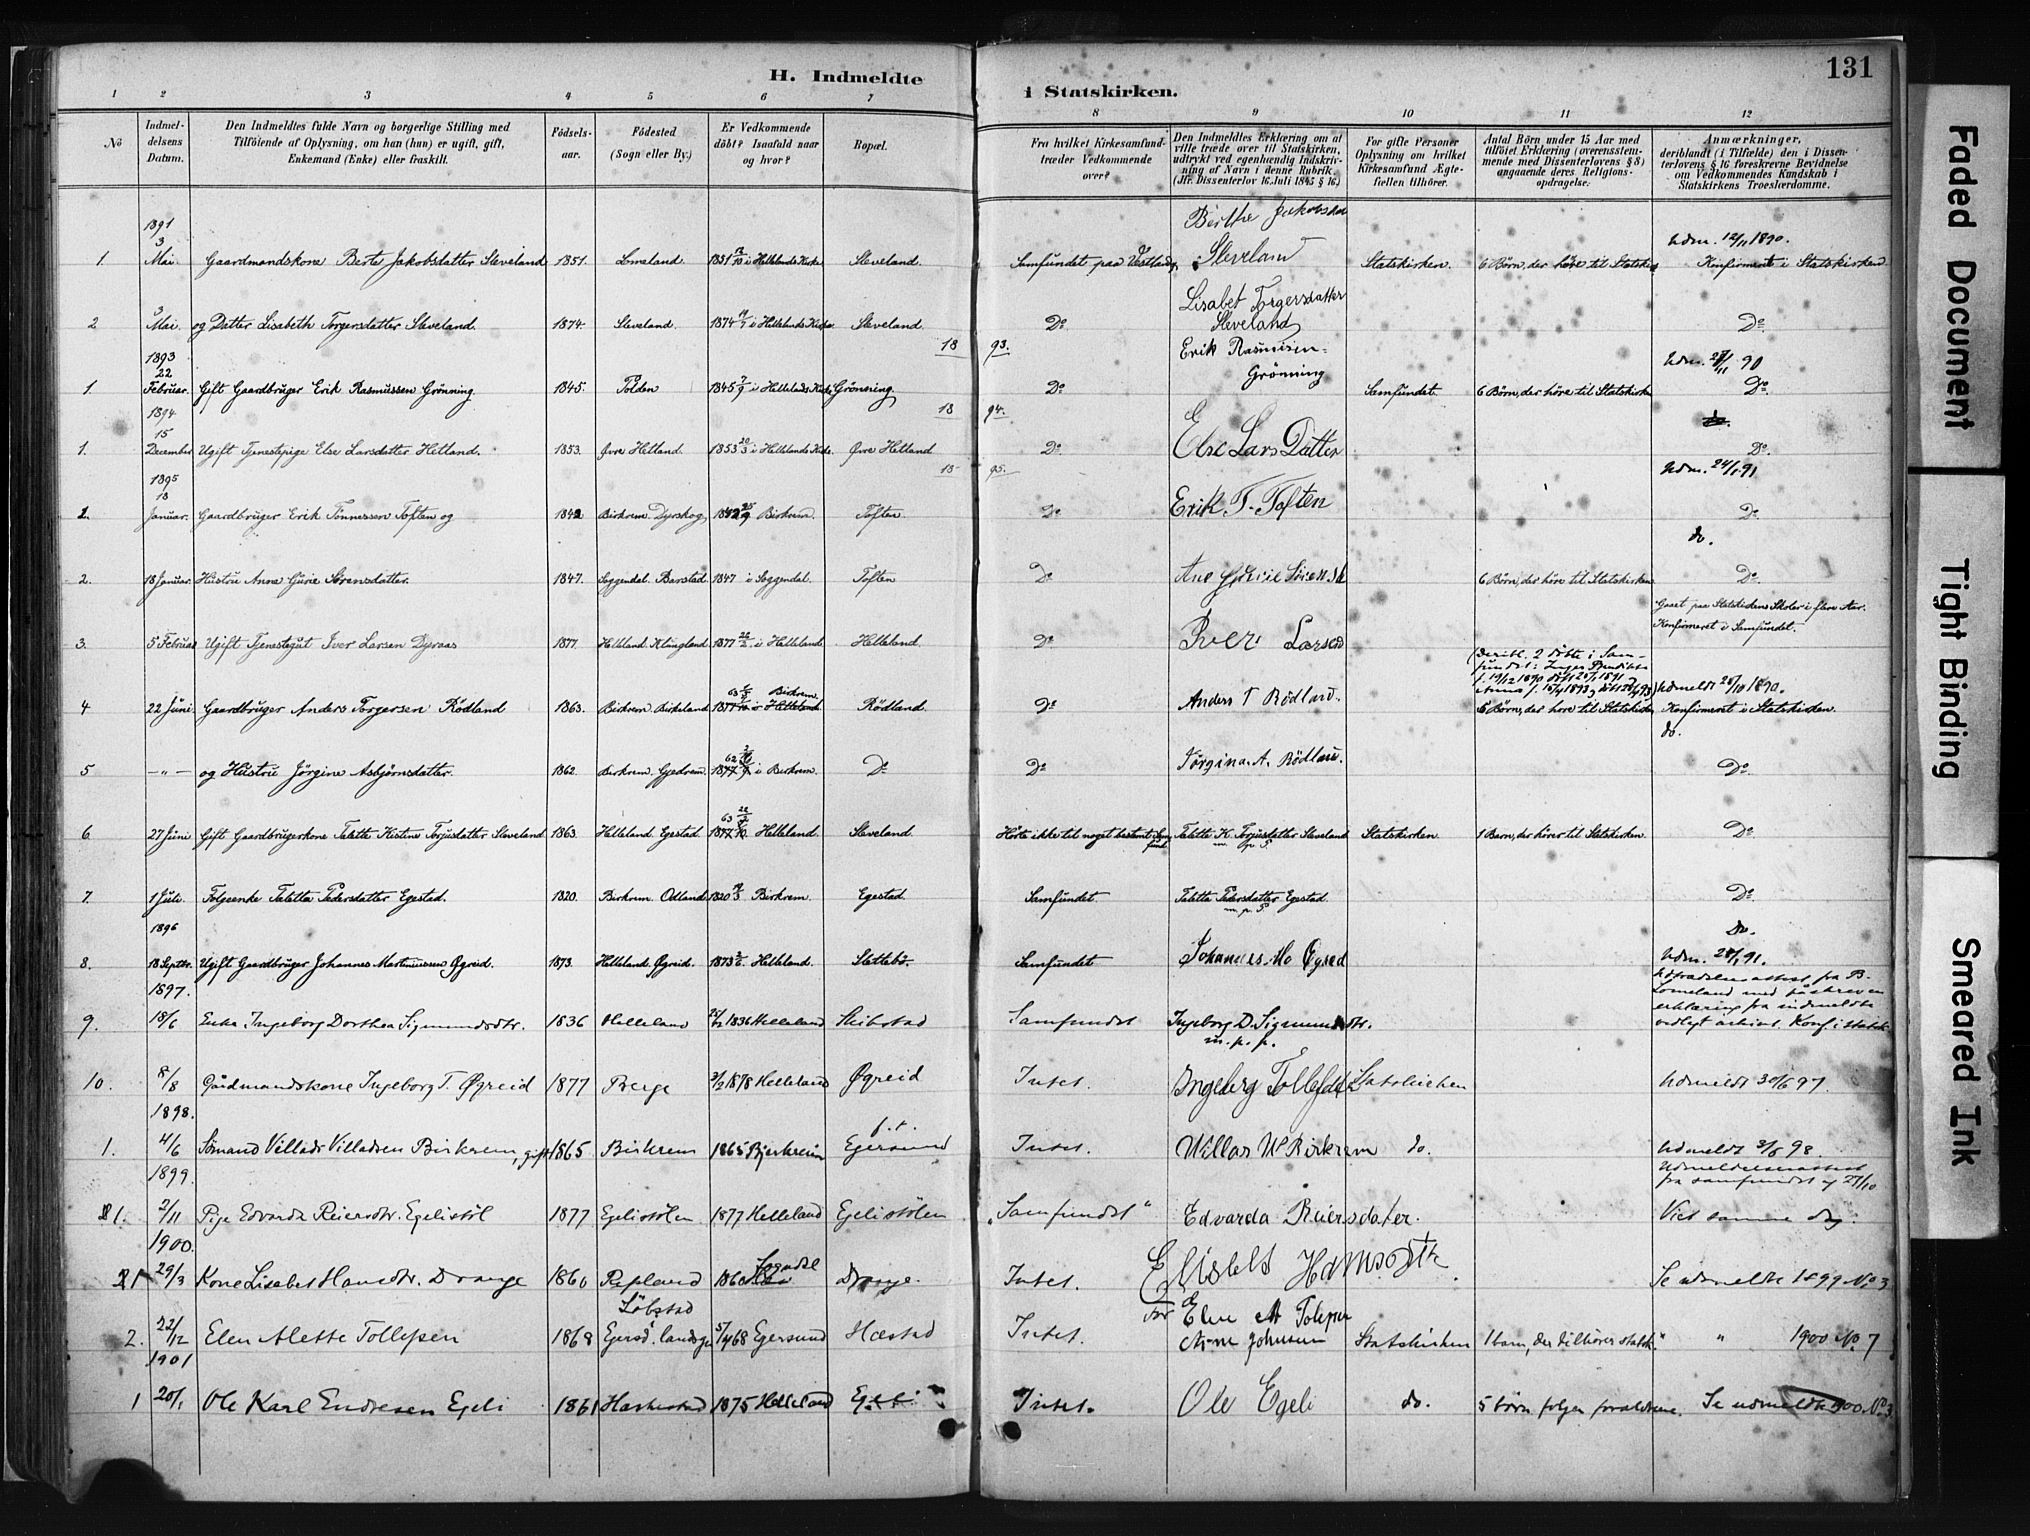 H. Indmeldte
i Statskirken.
131
1 2 3 4 5 6 7
8 9 10 11 12
No
Indmel-
delsens
Datum.
Den Indmeldtes fulde Navn og borgerlige Stilling med
Tilföiende af Oplysning, om han (hun) er ugift, gift,
Enkemand (Enke) eller fraskilt.
Födsels-
aar.
Födested
(Sogn eller By.)
Er Vedkommende
döbt? Isaafald naar
og hvor?
Bopæl.
Fra hvilket Kirkesamfund
træder Vedkommende
over?
Den Indmeldtes Erklæring om at
ville træde over til Statskirken,
udtrykt ved egenhændig Indskriv-
ning af Navn i denne Rubrik.
(Jfr. Dissenterlov 16. Juli 1845 § 16.)
For gifte Personer
Oplysning om hvilket
Kirkesamfund Ægte-
fællen tilhörer.
Antal Börn under 15 Aar med
tilföiet Erklæring (overensstem-
mende med Dissenterlovens § 8)
angaaende deres Religions-
opdragelse.
Anmærkninger,
deriblandt (i Tilfælde) den i Dissen-
terlovens § 16 foreskrevne Bevidnelse
om Vedkommendes Kundskab i
Statskirkens Troeslærdomme.
1891
1. 3 Mai. Gaardmandskone Berte Jakobsdatter Sleveland 1851. Lomeland. 1851 i Hellelands Kirke Sleveland.
Samfundet paa Vestland Berthe Jakobsdat Sleveland Statskirken. 6 Börn, der höre til Statskir Udm. 12/11 1890. Konfirmert i Statskirken
2 3 Mai. og Datter Lisabeth Torgersdatter Sleveland. 1874. Sleveland. 1874 i Hellelands Kirke Sleveland.
Do Lisabet Torgersdatter Sleveland Do
1893 18 93.
1. 22 Februar. Gift Gaardbruger Erik Rasmussen Grönning. 1845. Tolden 1845 7/9 i Hellelands Kirke Grönning
Do Erik Rasmusen Grönning Samfundet. 6 Börn, der höre til Statskirke Do.
1894. 18 94.
1. 15 December Ugift Tjenestepige Else Larsdatter Hetland. 1853. Øvre Hetland. 1853 20/3 i Hellelands Kirke. Øvre Hetland
Do Else Lars Datter Do.
1895 18 95. Udm. 24/1 91
1. 18 Januar. Gaardbruger Erik Tönnessen Toften og 1842 Birkrem Dyrskog 1842 Birkrem. Toften.
Do Erik T. Toften Do
do.
2. 18 Januar. Hustru Anne Gurie Sörensdatter. 1847. Soggendal. Barstad 1847 i Soggendal. Toften
Do 6 Börn, der höre til Statskirken Do
3. 5 Februar Ugift Tjenestegut Iver Larsen Dyraas 1877. Helleland. Klungland 1877 i Helleland Helleland
Do Iver Larsen Gaaet paa Statskirkens Skoler i flere Aar. Konfirmeret i Samfundet.
4 22 Juni Gaardbruger Anders Torgersen Rödland 1863. Birkrem. Birkeland 63 Birkrem. Rödland
Do Anders T Rödland. 6 Börn, der höre til Statskirken Udmeldt 28/10 1890. Konfirmeret i Statskirken.
do.
5 —„— og Hustru Jörgine Asbjörnsdatter. 1862. Birkrem. Gjedrem. 62 i Birkrem. Do
Do Jörgina. A. Rödland. Do.
6. 27 Juni Gift Gaardbrugerkone Talette Kistine Torjusdatter Sleveland 1863. Helleland Egestad 63 Helleland. Sleveland
Hörte ikke til noget bestemt Sam fund. Talette K. Torjusdatter Sleveland m. p. P. Statskirken 1 Barn, der hörer til Statskirken. Do
7. 1 Juli Folgeenke Taletta Pedersdatter Egestad. 1820. Birkrem. Odland 1820 Birkrem. Egestad.
Samfundet Taletta Pedersdatter Egestad. m. p. P. Do
1896 Do.
8. 18 Septbr. Ugift Gaardbruger Johannes Martinussen Øgreid. 1873. Helleland. Øgreid. 1873 Helleland. Slettebö.
Samfundet Johannes Mo Øgred Udm. 28/1 91.
1897.
9. 18/6 Enke Ingeborg Dorthea Sigmundsdtr. 1836 Helleland 1836 Helleland Skibstad
Samfundet Ingeborg D. Sigmundsdtr. m. p. p. Udtrædelsesattest fra B. Lomeland med påskreven erklæring fra indmeldte vedlagt arkivet. Konf. i statsk.
10. 8/8 Gårdmandskone Ingeborg T. Øgreid 1877 Berge 3/2 1878 Helleland Øgreid
Intet. Ingeberg Tollefdt Statskirken Udmeldt 30/6 97.
1898.
1. 4/6 Sömand Villads Villadsen Birkrem, gift 1865 Birkrem 1865 Bjerkreim f. t. Egersund
Intet. Willas W Birkrem do. Udmeldt 3/6 98.
1899. Udmeldelsesattest fra samfundet af 27/10
1. 2/11 Pige Edvarda Reiersdtr. Egelistöl 1877 Egelistölen 1877 Helleland Egelistölen
„Samfundet“ Edvarda Reiersdater. Viet samme dag.
1900.
1 29/3 Kone Lisabet Hansdtr. Drange 1860 Repland 1860 Sogndal Drange.
Intet. Elisabet Hansdtr. Se udmeldte 1899 No 3
2. 22/12 Elen Alette Tollefsen 1868 Löbstad Egersd. landsogn 5/4 68 Egersund Hæstad
Intet. for Elen A Tolefsen Statskirken 1 barn, der tilhörer statsk. „ „ 1900 No. 7
1901
1 20/1 Ole Karl Endresen Egeli 1861 Haskestad 1875 Helleland Egeli
Intet. Ole Egeli do. 5 börn følger forældrene. Se udmeldte 1900 No 3
Faded Document
Tight Binding
Smeared Ink